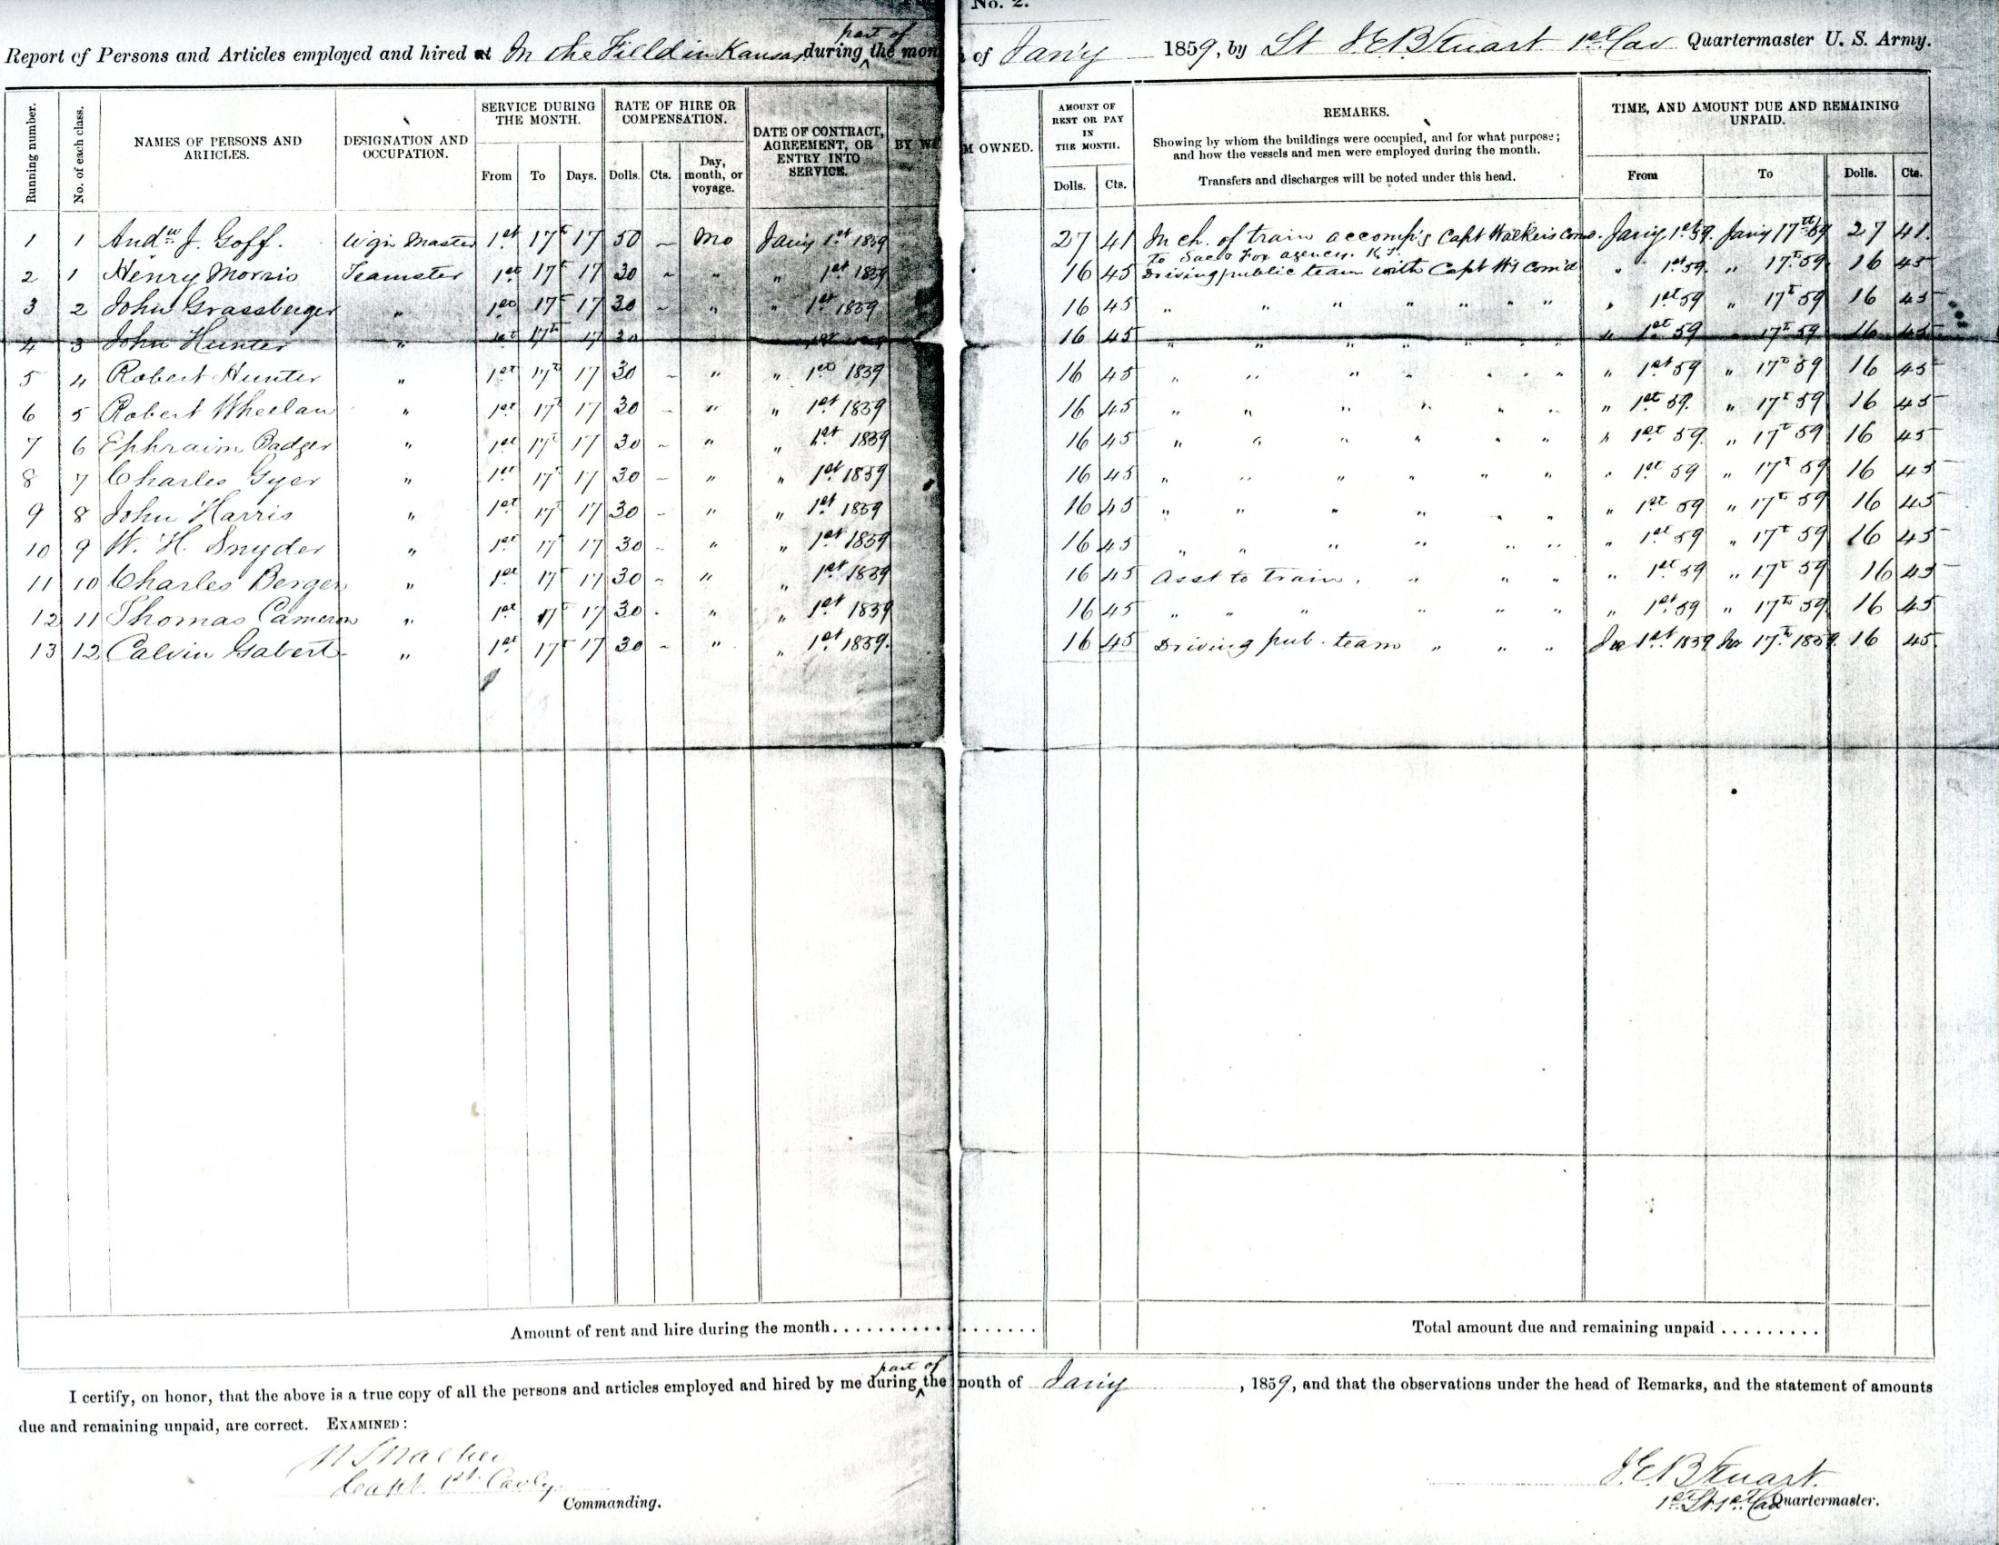 No. 2.
Report of Persons and Articles employed and hired at In the Field in Kansas during part of the month of Jan'y 1859, by Lt J.E.B. Stuart 1st Cav Quartermaster U. S. Army.
Running number. No. of each class. NAMES OF PERSONS AND ARTICLES. DESIGNATION AND OCCUPATION. SERVICE DURING THE MONTH. From To Days. RATE OF HIRE OR COMPENSATION. Dolls. Cts. Day, month, or voyage. DATE OF CONTRACT, AGREEMENT, OR ENTRY INTO SERVICE. BY W M OWNED. AMOUNT OF RENT OR PAY IN THE MONTH. Dolls. Cts. REMARKS. Showing by whom the buildings were occupied, and for what purpose; and how the vessels and men were employed during the month. Transfers and discharges will be noted under this head. TIME, AND AMOUNT DUE AND REMAINING UNPAID. From To Dolls. Cts.
1 1 Andw J. Goff. Wgn Master 1st 17t 17 50 – Mo Jan'y 1st 1859 27 41 In ch. of train accomp'g Capt Walker's com'd. Jan'y 1st 59. Jan'y 17th 59 27 41.
To Sac & Fox agency. K.T.
2 1 Henry Morris Teamster 1st 17t 17 30 – " " 1st 1859 16 45 Driving public team with Capt W's Com'd " 1st 59. " 17t 59 16 45
3 2 John Grassberger " 1st 17t 17 30 – " " 1st 1859 16 45 " " " " " " " " 1st 59 " 17t 59 16 45
4 3 John Hunter " 1st 17t 17 30 16 45 " " " " " " " 1st 59 17t 59 16 45
5 4 Robert Hunter " 1st 17t 17 30 – " " 1st 1859 16 45 " " " " " " " 1st 59 " 17t 59 16 45
6 5 Robert Wheelan " 1st 17t 17 30 – " " 1st 1859 16 45 " " " " " " " 1st 59. " 17t 59 16 45
7 6 Ephraim Badger " 1st 17t 17 30 – " " 1st 1859 16 45 " " " " " " 1st 59. " 17t 59 16 45
8 7 Charles Gyer " 1st 17t 17 30 – " " 1st 1859 16 45 " " " " " " " 1st 59 " 17t 59 16 45
9 8 John Harris " 1st 17t 17 30 – " " 1st 1859 16 45 " " " " " " " 1st 59 " 17t 59 16 45
10 9 W. H. Snyder " 1st 17t 17 30 – " " 1st 1859 16 45 " " " " " " " 1st 59 " 17t 59 16 45
11 10 Charles Berger " 1st 17t 17 30 – " " 1st 1859 16 45 Asst to train. " " " " 1st 59 " 17t 59 16 45
12 11 Thomas Cameron " 1st 17t 17 30 . " " 1st 1859 16 45 " " " " " " " 1st 59 " 17th 59 16 45
13 12 Calvin Gabert " 1st 17t 17 30 – " " 1st 1859. 16 45 Driving pub. team " " " Ja 1st 1859 Ja 17t 1859. 16 45.
Amount of rent and hire during the month.................... Total amount due and remaining unpaid .........
I certify, on honor, that the above is a true copy of all the persons and articles employed and hired by me during part of the month of Jan'y , 1859, and that the observations under the head of Remarks, and the statement of amounts
due and remaining unpaid, are correct. EXAMINED:
W S Walker
Capt. 1st Cavly.
Commanding.
J.E.B. Stuart.
1st Lt 1st Cav Quartermaster.